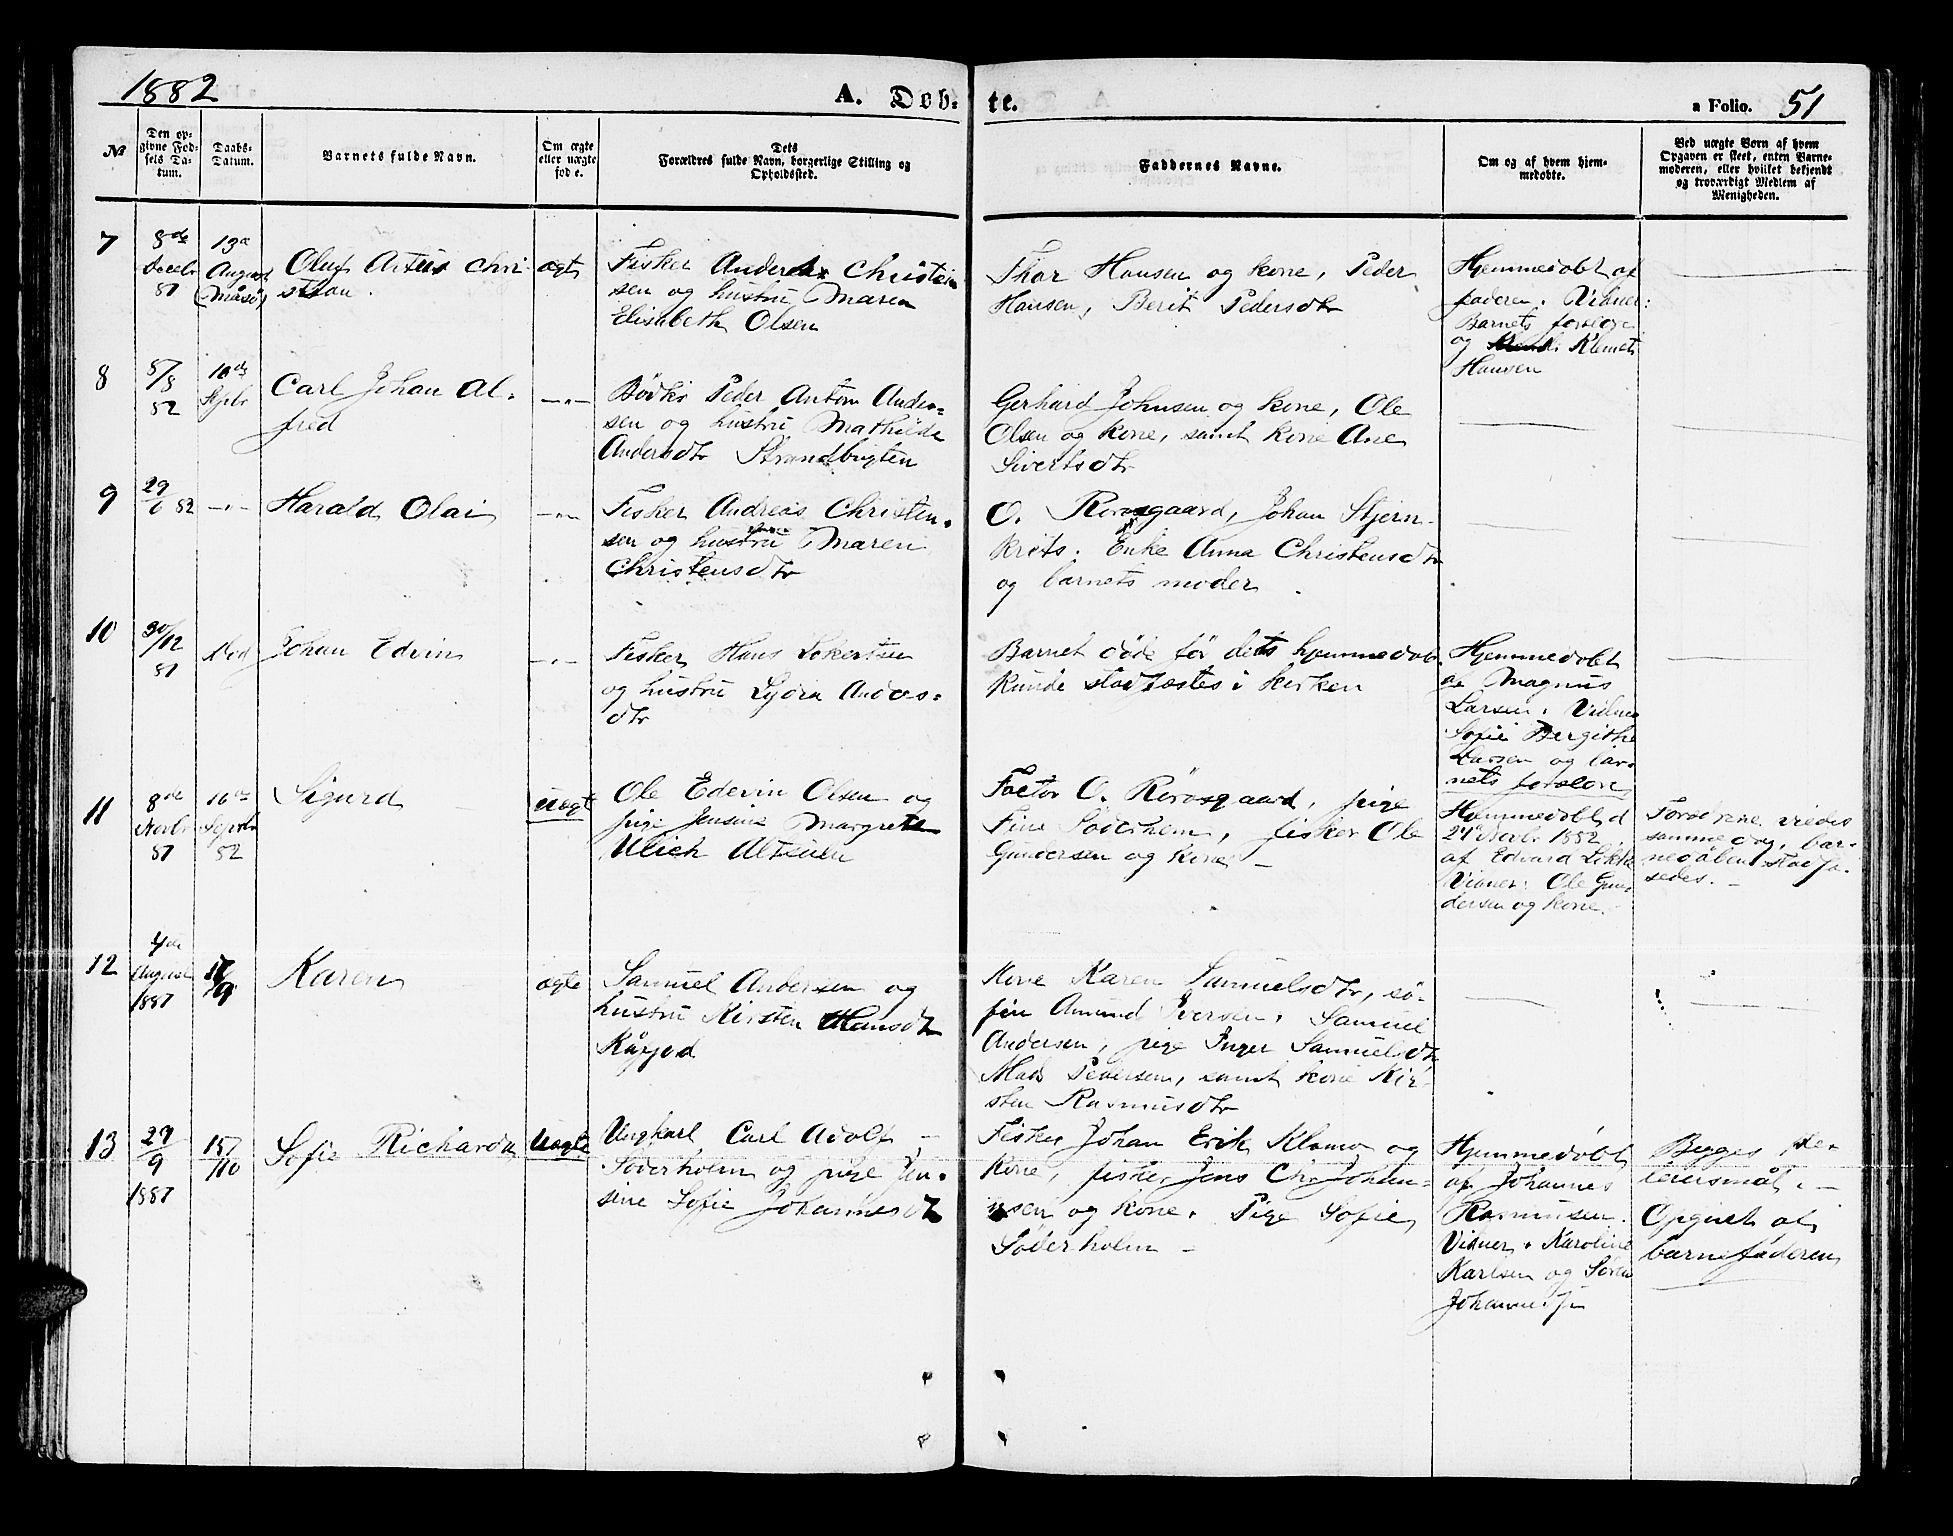 1882
A. Døb- te.
a Folio. 51
No
Den op-
givne Fød-
sels Da-
tum.
Daabs-
Datum.
Barnets fulde Navn.
Om ægte
eller uægte
fød e.
Dets
Forældres fulde Navn, borgerlige Stilling og
Opholdssted.
Faddernes Navne.
Om og af hvem hjem-
medøbte.
Ved uægte Børn af hvem
Opgaven er skeet, enten Barne-
moderen, eller hvilket bekjendt
og troværdigt Medlem af
Menigheden.
7
8de
Decbr
81
13de
August
(Måsø)
Oluf Artus Chri-
stian.
ægte
Fisker Andreas Christen-
sen og hustru Maren
Elisabeth Olsen
Thor Hansen og kone, Peder
Hansen, Berit Pedersdtr
Hjemmedøbt af
faderen. Vidner:
Barnets forældre
og Klemet
Hansen
8
5/8
82
10de
Septbr
Carl Johan Al-
fred
—"—
Bødker Peder Anton Ander-
sen og hustru Mathilde
Andersdtr Strandbugten
Gerhard Johnsen og kone, Ole
Olsen og kone, samt kone Ane
Sivertsdtr
9
29/6 82
—"—
Harald Olai
—"—
Fisker Andreas Christen-
sen og hustru Maren
Christensdtr
O. Rørosgaard, Johan Stjern-
krets. Enke Anna Christensdtr
og barnets moder
10
30/12
81
Død
Johan Edvin
—"—
Fisker Hans Lokertsen
og hustru Lydia Anders-
dtr
Barnet døde før dets hjemmedåb
kunde stadfæstes i kirken
Hjemmedøbt
af Magnus
Larsen. Vidner
Sofie Bergithe
Larsen og bar-
nets forældre
11
8de
Novbr
81
10de
Septbr
82
Sigurd
uægte
Ole Edevin Olsen og
pige Jensine Margrete
Ulich Altsuen
Factor O. Rørosgaard, pige
Fine Søderholm, fisker Ole
Gundersen og kone —
Hjemmedøbt d
24 Novb. 1882
af Edvard
Vidner: Ole Gun-
dersen og kone.
Forældrene viedes
samme dag, bar-
nedåben stadfæ-
stedes. —
12
4de
August
1881
17/9
Karen
ægte
Samuel Andersen og
hustru Kirsten Hansdtr
Kåfjord
Kone Karen Samuelsdtr, sø-
fin Amund Iversen. Samuel
Andersen, pige Inger Samuelsdtr
Mads Pedersen, samt kone Kir-
sten Rasmusdtr
13
29/9
1881
15/10
Sofie Richarda
Uægte
Ungkarl Carl Adolf —
Søderholm og pige Jen-
sine Sofie Johannesdtr
Fisker Johan Erik Klamo og
kone, fisker Jens Chr. Johan-
nsen og kone. Pige Sofie
Søderholm —
Hjemmedøbt
af Johannes
Rasmussen.
Vidner: Karoline
Karlsen og Søren
Johannesen
Begges 1ste
leiermål. —
Opgivet af
barnefaderen